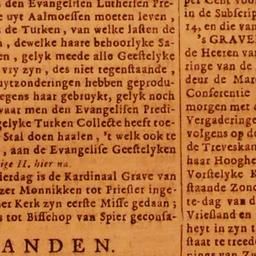 den Evangelisten Lutherſen Pre-
uyt Aalmoeſſen moeten leven,
de Turken, van welke laſten de
, dewelke haare behoorlyke Sa-
en, gelyk meede alle Geeſtelyke
vry zyn, des niet tegenſtaande,
uytzonderingen hebben gepredu-
egens haar gebruykt, gelyk noch
waar men den Evangeliſen Predi-
gelyke Turken Collecte heeft roe-
Stal doen haalen, 't welk ook te
, aan de Evangeliſe Geeſtelyken
ige II. hier na.
ierdag is de Kardinaal Grave van
zer Monnikken tot Prieſter inge-
her Kerk zyn eerſte Miſſe gedaan;
s tot Biſſchop van Spier geconſa-
ANDEN.
per Cent voor
in de Subſcrip
14, en die van
's GRAVE
de Heeren van
ringe van de
deur de Mare
Conferentie
morgen met d
Vergaderinge
volgens op de
de Treveskan
haar Hooghe
Vorſtelyke K
ſtaande Zond
te-dag van d
Vrieſland en
heyt in zyn t
ſtaat te treede
pings van Zu